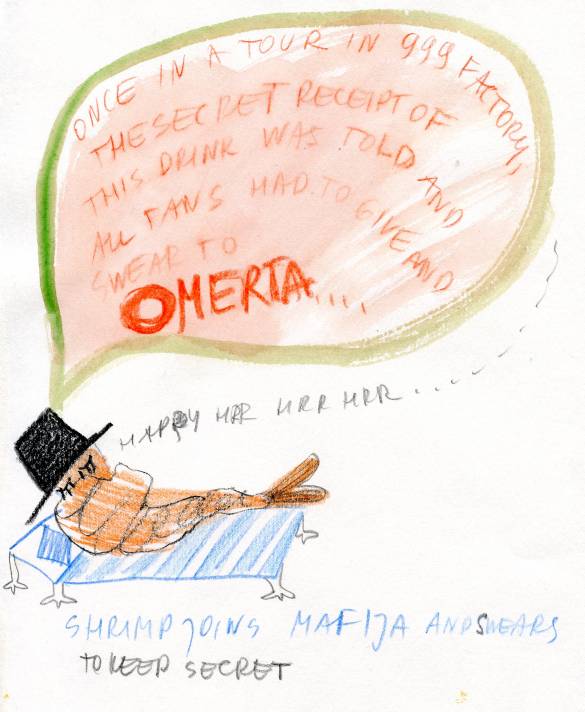 ONCE IN A TOUR IN 999 FACTORY,
THE SECRET RECEIPT OF
THIS DRINK WAS TOLD AND
ALL FANS HAD TO GIVE AND
SWEAR TO
OMERTA....
HAPPY HRR HRR HRR....
SHRIMP JOINS MAFIJA AND SWEARS
TO KEEP SECRET